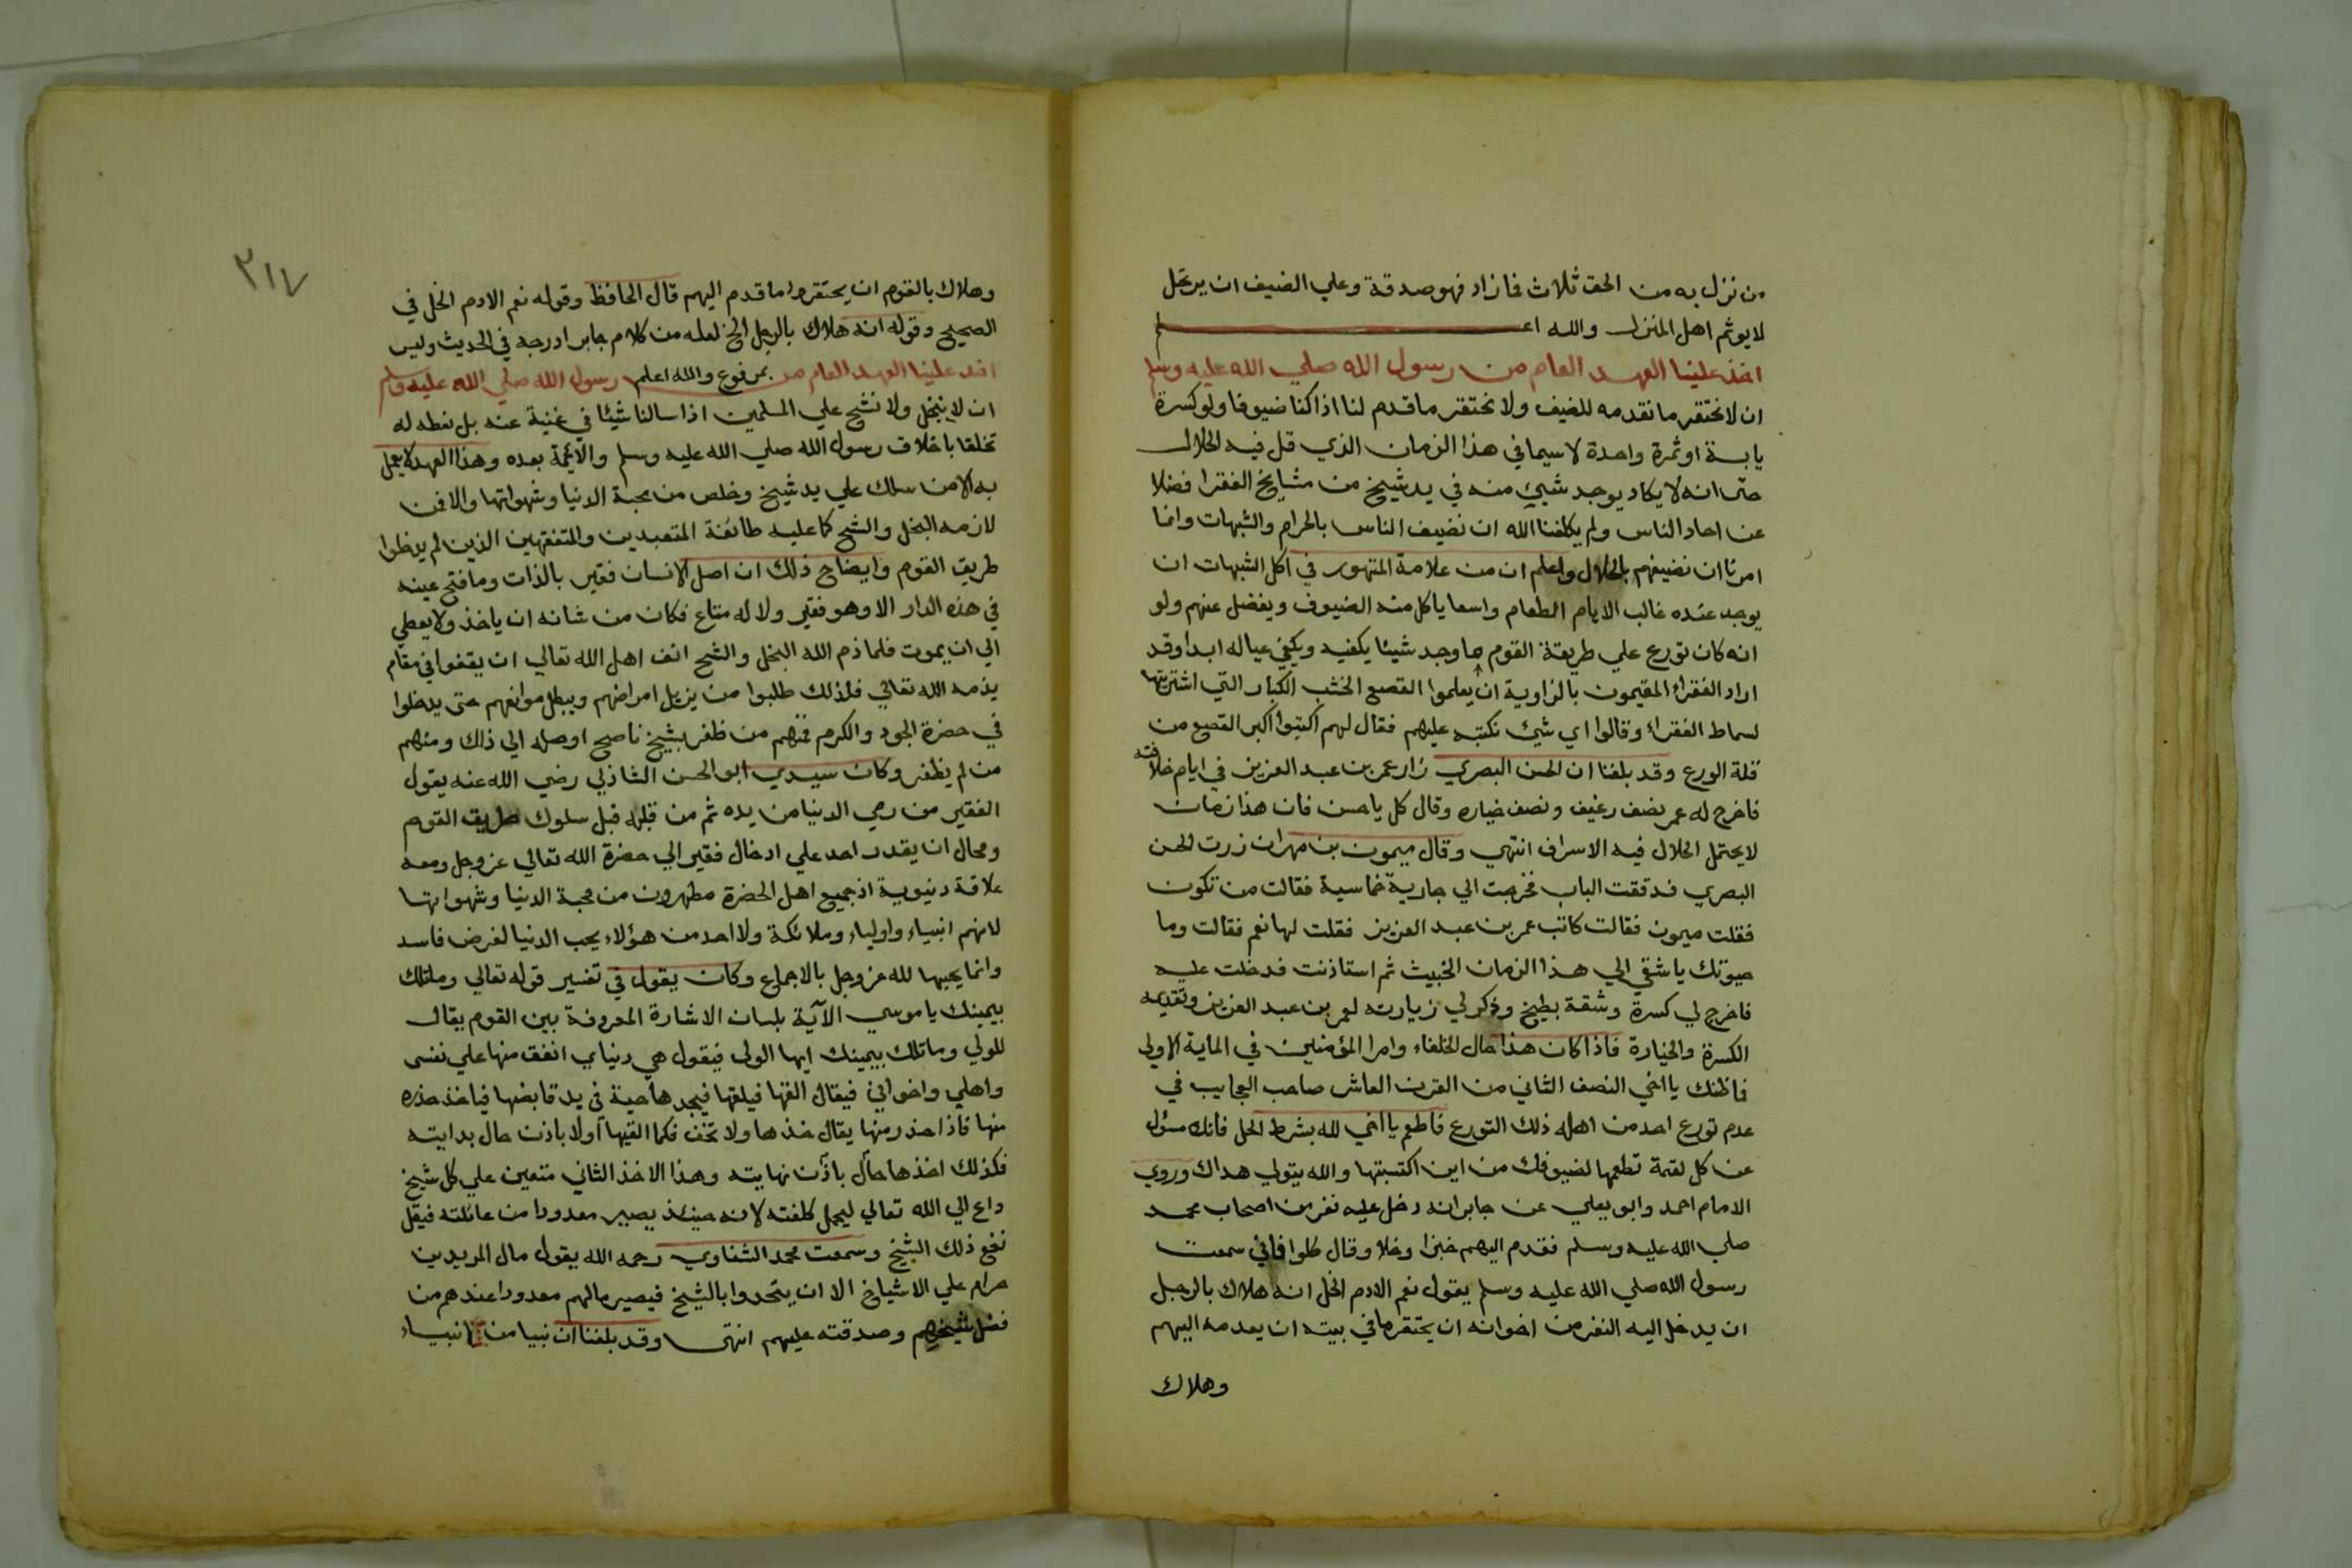 من نزل به من الحق ثلاث فما زاد فهو صدقة وعلي الضيف ان يرتحل
لا يوثم اهل المنزل والله اعلم
اخذ علينا العهد العام من رسول الله صلي الله عليه وسلم
ان لا نحتقر ما نقدمه للضيف ولا نحتقر ما قدم لنا اذا كنا ضيوفا ولو كسرة
يابسة او ثمرة واحدة لا سيما في هذا الزمان الذي قل فيه الحلال
حتى انه لا يكاد يوجد شيئ منه في يد شيخ من مشايخ الفقرا فضلا
عن احاد الناس ولم يكلفنا الله ان نضيف الناس بالحرام والشبهات وانما
امرنا ان نضيفهم بالحلال واعلم ان من علامة المتهور في اكل الشبهات ان
يوجد عنده غالب الايام الطعام واسعا ياكل منه الضيوف ويفضل عنهم ولو
انه كان تورع علي طريقة القوم ما وجد شيئا يكفيه ويكفي عياله ابدا وقد
اراد الفقراء المقيمون بالزاوية ان يعلموا القصع الخشب الكبار التي اشتريتها
لسماط الفقراء وقالوا اي شيئ نكتبه عليهم فقال لهم اكتبوا اكبر القصع من
قلة الورع وقد بلغنا ان الحسن البصري زار عمر بن عبد العزيز في ايام خلافته
فاخرج له عمر نصف رغيف ونصف خياره وقال كل يا حسن فان هذا زمان
لا يحتمل الحلال فيه الاسراف انتهي وقال ميمون بن مهران زرت الحسن
البصري فدققت الباب فخرجت الي جارية خماسية فقالت من تكون
فقلت ميمون فقالت كاتب عمر بن عبد العزيز فقلت لها نعم فقالت وما
حيوتك يا شقي الي هذا الزمان الخبيث ثم استاذنت فدخلت عليه
فاخرج لي كسرة وشقة بطيخ وذكر لي زيارته لعمر بن عبد العزيز وتقديمه
الكسرة والخيارة فاذا كان هذا حال الخلفاء وامرا المؤمنين في الماية الاولى
فما ظنك يا اخي النصف الثاني من القرن العاشر صاحب العجايب في
عدم تورع احد من اهله ذلك التورع فاطعم يا اخي لله بشرط الحل فانك مسئول
عن كل لقمة تطعمها لضيوفك من اين اكتسبتها والله يتولي هداك وروي
الامام احمد وابو يعلي عن جابر انه دخل عليه نفر من اصحاب محمد
صلي الله عليه وسلم فقدم اليهم خبزا وخلا وقال كلوا فاني سمعت
رسول الله صلي الله عليه وسلم يقول نعم الادم الخل انه هلاك بالرجل
ان يدخل اليه النفر من اخوانه ان يحتقر ما في بيته ان يقدمه اليهم
وهلاك
٣١٧
وهلاك بالقوم ان يحتقروا ما قدم اليهم قال الحافظ وقوله نعم الادم الخل في
الصحيح وقوله انه هلاك بالرجل الخ لعله من كلام جابر ادرجه في الحديث وليس
بمرفوع والله اعلم اخذ علينا العهد العام من رسول الله صلي الله عليه وسلم
ان لا نبخل ولا نشح علي المسلمين اذا سالنا شيئا في غنية عنه بل نعطه له
تخلقا باخلاق رسول الله صلي الله عليه وسلم والائمة بعده وهذا العهد لا يعمل
به الا من سلك علي يد شيخ وخلص من محبة الدنيا وشهواتها والا فمن
لازمه البخل والشح كما عليه طائفة المتعبدين والمتفقهين الذين لم يدخلوا
طريق القوم وايضاح ذلك ان اصل الانسان فقير بالذات وما فتح عينه
في هذه الدار الا وهو فقير ولا له متاع فكان من شانه ان ياخذ ولا يعطي
الي ان يموت فلما ذم الله البخل والشح انف اهل الله تعالي ان يقفوا في مقام
يذمه الله تعالي فلذلك طلبوا من يزيل امراضهم ويبطل موانعهم حتى يدخلوا
في حضرة الجود والكرم فمنهم من ظفر بشيخ ناصح اوصله الي ذلك ومنهم
من لم يظفر وكان سيدي ابو الحسن الشاذلي رضي الله عنه يقول
الفقير من رمي الدنيا من يده ثم من قلبه قبل سلوك طريق القوم
ومحال ان يقدر احد علي ادخال فقير الي حضرة الله تعالي عز وجل ومعه
علاقة دنيوية اذ جميع اهل الحضرة مطهرون من محبة الدنيا وشهواتها
لانهم انبياء واولياء وملائكة ولا احد من هؤلاء يحب الدنيا لغرض فاسد
وانما يحبها لله عز وجل بالاجماع وكان يقول في تفسير قوله تعالي وما تلك
بيمينك يا موسي الآية بلسان الاشارة المعروفة بين القوم يقال
للولي وما تلك بيمينك ايها الولي فيقول هي دنياي انفق منها علي نفسى
واهلي واخواني فيقال القها فيلقها فيجدها حية في يد قابضها فياخذ حذره
منها فاذا حذر منها يقال خذها ولا تخف فكما القيها اولا باذن حال بدايته
فكذلك اخذها حال باذن نهايته وهذا الاخذ الثاني متعين علي كل شيخ
داع الي الله تعالي ليحمل كلفته لانه حينئذ يصير معدودا من عائلته فيقل
نفع ذلك الشيخ وسمعت محمد الشناوي رحمه الله يقول مال المريدين
حرام علي الاشياخ الا ان يتحدوا بالشيخ فيصير مالهم معدودا عندهم من
فضل شيخهم وصدقته عليهم انتهى وقد بلغنا ان نبيا من انبياء